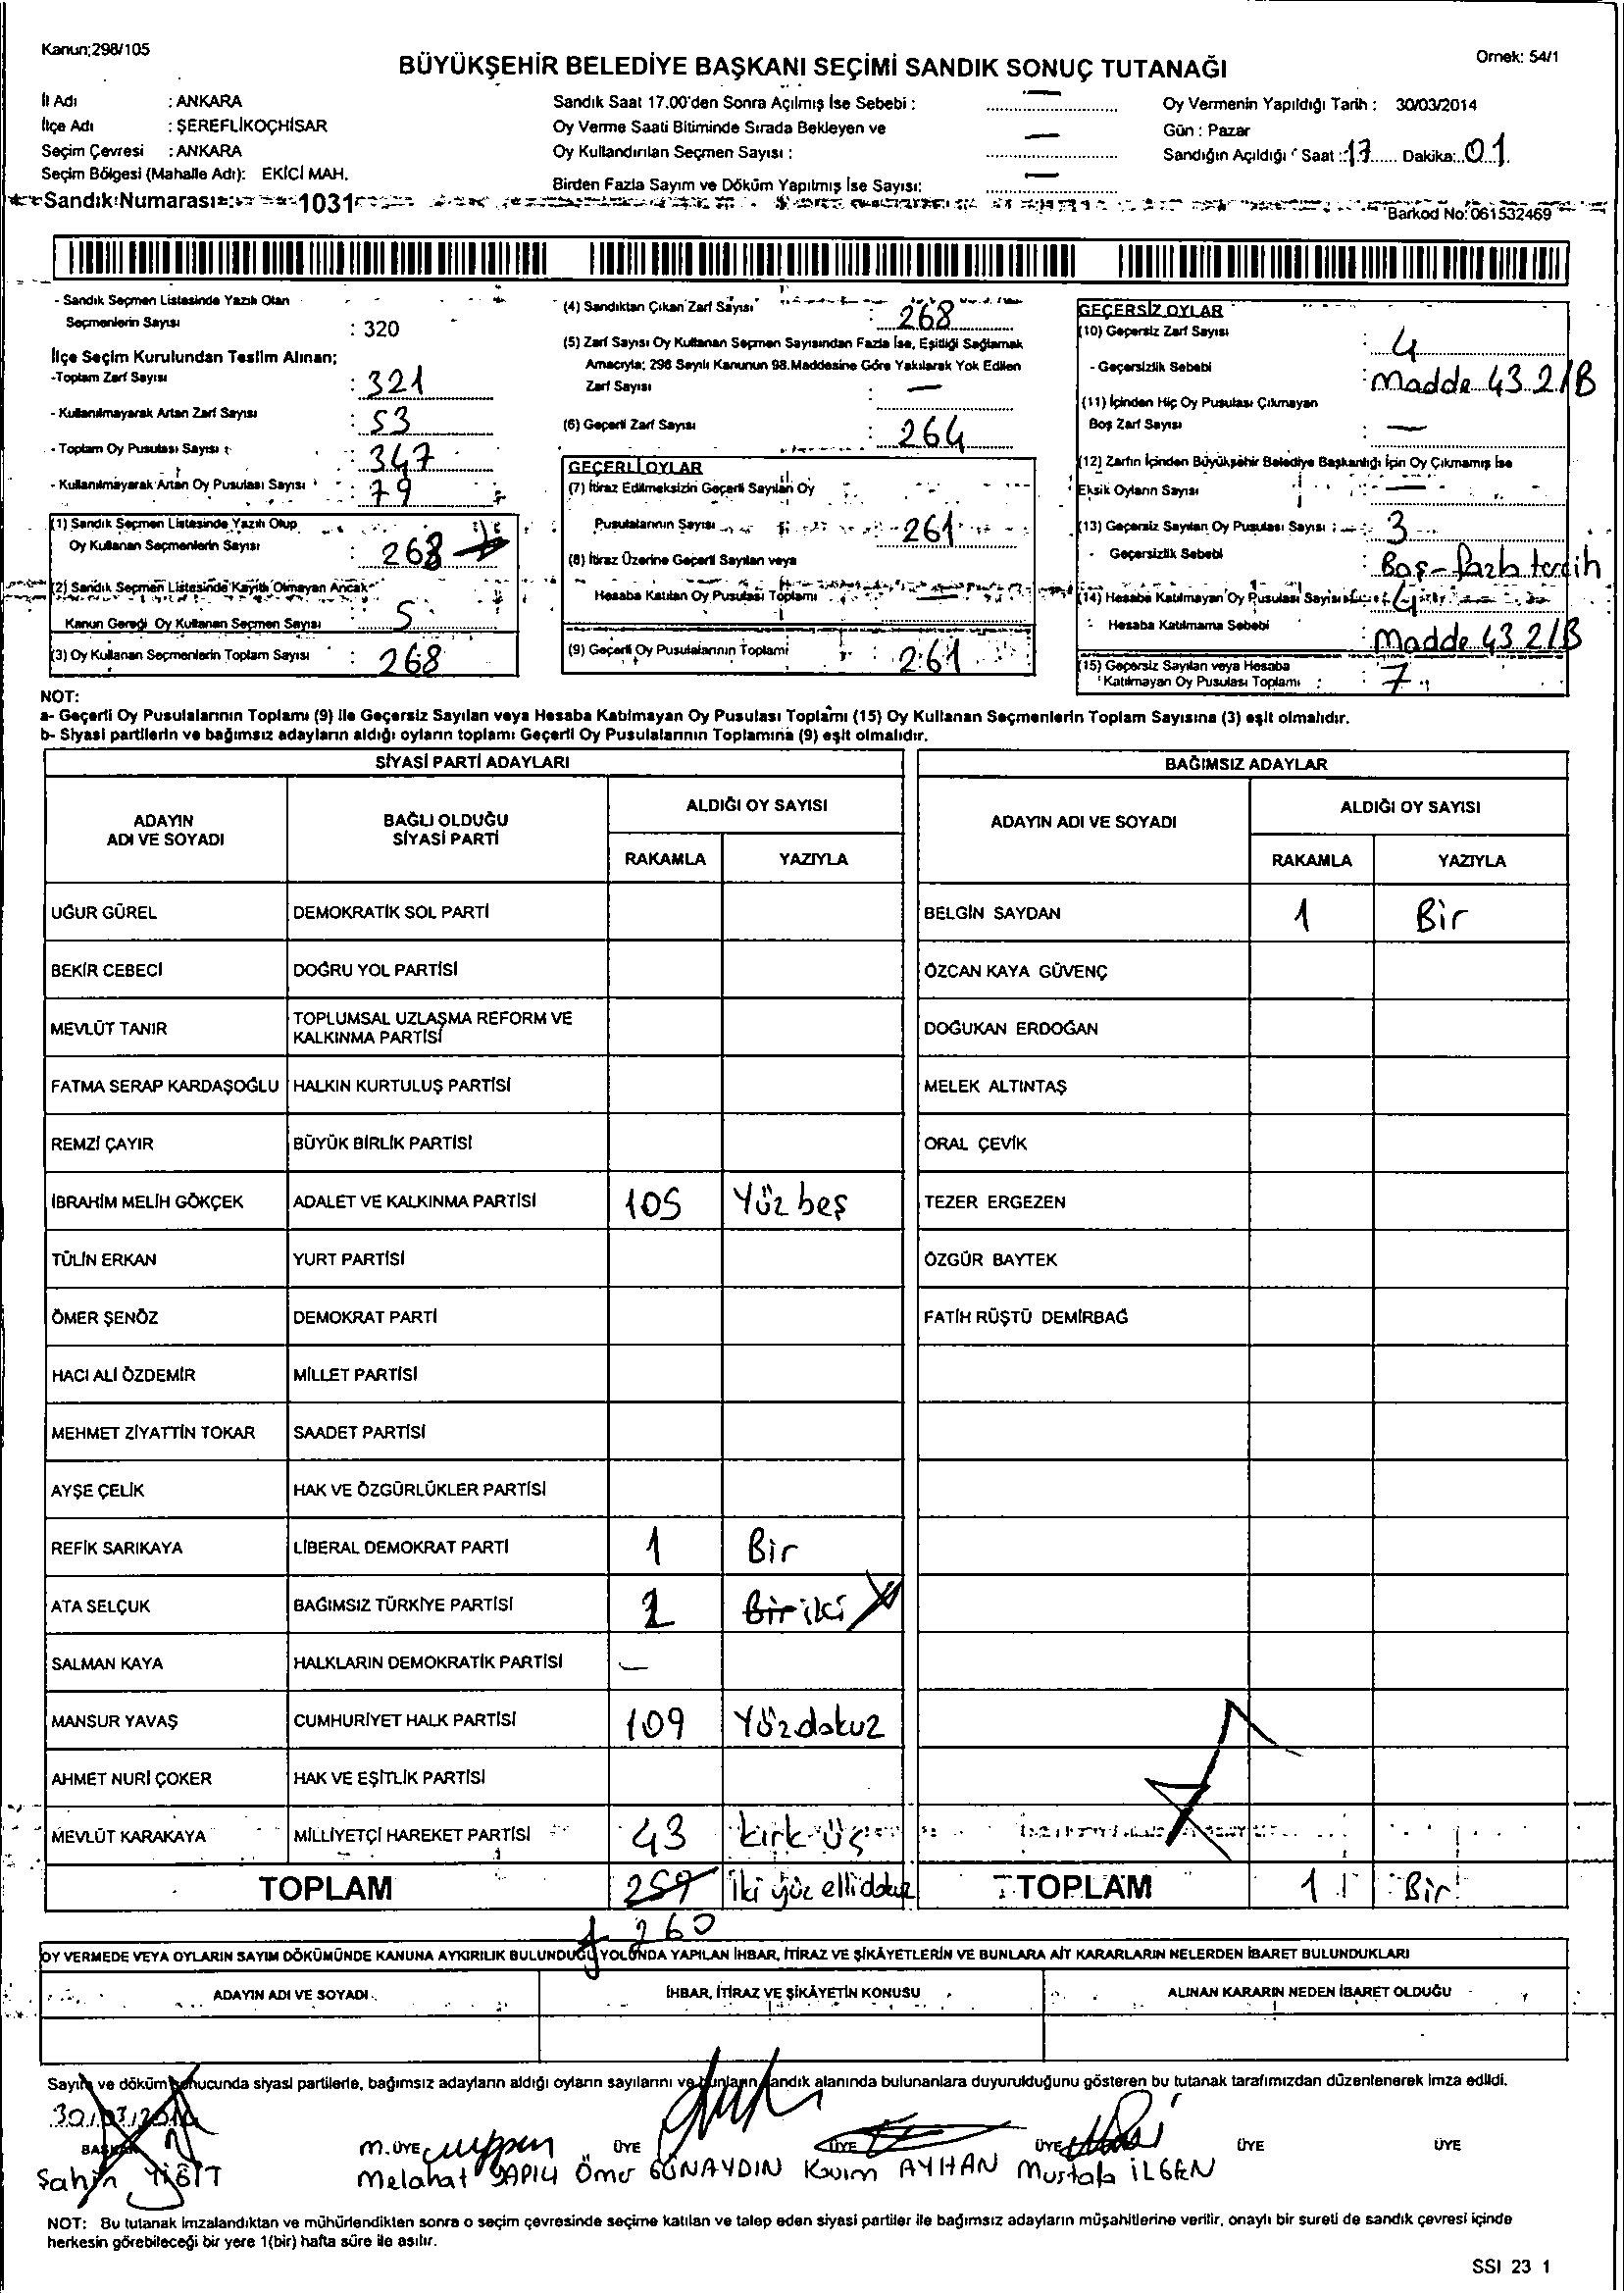 Kanun;298/105
Ornek: 54/1
BÜYÜKŞEHİR BELEDİYE BAŞKANI SEÇİMİ SANDIK SONUÇ TUTANAĞI
İl Adı : ANKARA
İlçe Adı : ŞEREFLİKOÇHİSAR
Seçim Çevresi : ANKARA
Seçim Bölgesi (Mahalle Adı): EKİCİ MAH.
Sandık Numarası: 1031
Sandık Saat 17.00'den Sonra Açılmış İse Sebebi : —
Oy Verme Saati Bitiminde Sırada Bekleyen ve
Oy Kullandırılan Seçmen Sayısı : —
Birden Fazla Sayım ve Döküm Yapılmış İse Sayısı: —
Oy Vermenin Yapıldığı Tarih : 30/03/2014
Gün : Pazar
Sandığın Açıldığı Saat : 17 Dakika: 01
Barkod No: 061532469
- Sandık Seçmen Listesinde Yazılı Olan
Seçmenlerin Sayısı : 320
İlçe Seçim Kurulundan Teslim Alınan;
-Toplam Zarf Sayısı : 321
- Kullanılmayarak Artan Zarf Sayısı : 53
- Toplam Oy Pusulası Sayısı : 347
- Kullanılmayarak Artan Oy Pusulası Sayısı : 79
(1) Sandık Seçmen Listesinde Yazılı Olup
Oy Kullanan Seçmenlerin Sayısı : 263
(2) Sandık Seçmen Listesinde Kayıtlı Olmayan Ancak
Kanun Gereği Oy Kullanan Seçmen Sayısı : 5
(3) Oy Kullanan Seçmenlerin Toplam Sayısı : 268
(4) Sandıktan Çıkan Zarf Sayısı : 268
(5) Zarf Sayısı Oy Kullanan Seçmen Sayısından Fazla İse, Eşitliği Sağlamak
Amacıyla; 298 Sayılı Kanunun 98.Maddesine Göre Yakılarak Yok Edilen
Zarf Sayısı : —
(6) Geçerli Zarf Sayısı : 264
GEÇERLİ OYLAR
(7) İtiraz Edilmeksizin Geçerli Sayılan Oy
Pusulalarının Sayısı : 261
(8) İtiraz Üzerine Geçerli Sayılan veya
Hesaba Katılan Oy Pusulası Toplamı : —
(9) Geçerli Oy Pusulalarının Toplamı : 261
GEÇERSİZ OYLAR
(10) Geçersiz Zarf Sayısı : 4
- Geçersizlik Sebebi : Madde 43.2/B
(11) İçinden Hiç Oy Pusulası Çıkmayan
Boş Zarf Sayısı : —
(12) Zarfın İçinden Büyükşehir Belediye Başkanlığı İçin Oy Çıkmamış İse
Eksik Oyların Sayısı : —
(13) Geçersiz Sayılan Oy Pusulası Sayısı : 3
- Geçersizlik Sebebi : Boş-fazla tercih
(14) Hesaba Katılmayan Oy Pusulası Sayısı : 4
- Hesaba Katılmama Sebebi : Madde 43.2/B
(15) Geçersiz Sayılan veya Hesaba
Katılmayan Oy Pusulası Toplamı : 7
NOT:
a- Geçerli Oy Pusulalarının Toplamı (9) ile Geçersiz Sayılan veya Hesaba Katılmayan Oy Pusulası Toplamı (15) Oy Kullanan Seçmenlerin Toplam Sayısına (3) eşit olmalıdır.
b- Siyasi partilerin ve bağımsız adayların aldığı oyların toplamı Geçerli Oy Pusulalarının Toplamına (9) eşit olmalıdır.
SİYASİ PARTİ ADAYLARI BAĞIMSIZ ADAYLAR
ADAYIN ADI VE SOYADI BAĞLI OLDUĞU SİYASİ PARTİ ALDIĞI OY SAYISI ADAYIN ADI VE SOYADI ALDIĞI OY SAYISI
RAKAMLA YAZIYLA RAKAMLA YAZIYLA
UĞUR GÜREL DEMOKRATİK SOL PARTİ BELGİN SAYDAN 1 Bir
BEKİR CEBECİ DOĞRU YOL PARTİSİ ÖZCAN KAYA GÜVENÇ
MEVLÜT TANIR TOPLUMSAL UZLAŞMA REFORM VE KALKINMA PARTİSİ DOĞUKAN ERDOĞAN
FATMA SERAP KARDAŞOĞLU HALKIN KURTULUŞ PARTİSİ MELEK ALTINTAŞ
REMZİ ÇAYIR BÜYÜK BİRLİK PARTİSİ ORAL ÇEVİK
İBRAHİM MELİH GÖKÇEK ADALET VE KALKINMA PARTİSİ 105 Yüz beş TEZER ERGEZEN
TÜLİN ERKAN YURT PARTİSİ ÖZGÜR BAYTEK
ÖMER ŞENÖZ DEMOKRAT PARTİ FATİH RÜŞTÜ DEMİRBAĞ
HACI ALİ ÖZDEMİR MİLLET PARTİSİ
MEHMET ZİYATTİN TOKAR SAADET PARTİSİ
AYŞE ÇELİK HAK VE ÖZGÜRLÜKLER PARTİSİ
REFİK SARIKAYA LİBERAL DEMOKRAT PARTİ 1 Bir
ATA SELÇUK BAĞIMSIZ TÜRKİYE PARTİSİ 2 Bir iki
SALMAN KAYA HALKLARIN DEMOKRATİK PARTİSİ —
MANSUR YAVAŞ CUMHURİYET HALK PARTİSİ 109 Yüzdokuz
AHMET NURİ ÇOKER HAK VE EŞİTLİK PARTİSİ
MEVLÜT KARAKAYA MİLLİYETÇİ HAREKET PARTİSİ 43 kırk üç
TOPLAM 259 İki yüz elli dokuz TOPLAM 1 Bir
260
OY VERMEDE VEYA OYLARIN SAYIM DÖKÜMÜNDE KANUNA AYKIRILIK BULUNDUĞU YOLUNDA YAPILAN İHBAR, İTİRAZ VE ŞİKÂYETLERİN VE BUNLARA AİT KARARLARIN NELERDEN İBARET BULUNDUKLARI
ADAYIN ADI VE SOYADI İHBAR, İTİRAZ VE ŞİKÂYETİN KONUSU ALINAN KARARIN NEDEN İBARET OLDUĞU
Sayım ve döküm sonucunda siyasi partilerle, bağımsız adayların aldığı oyların sayılarını ve bunların sandık alanında bulunanlara duyurulduğunu gösteren bu tutanak tarafımızdan düzenlenerek imza edildi.
30/03/2014
BAŞKAN M. ÜYE ÜYE ÜYE ÜYE ÜYE ÜYE
Şahin YİĞİT Melahat YAPILI Ömer GÜNAYDIN Kasım AYHAN Mustafa İLGEN
NOT: Bu tutanak imzalandıktan ve mühürlendikten sonra o seçim çevresinde seçime katılan ve talep eden siyasi partiler ile bağımsız adayların müşahitlerine verilir, onaylı bir sureti de sandık çevresi içinde
herkesin görebileceği bir yere 1(bir) hafta süre ile asılır.
SSI 23 1